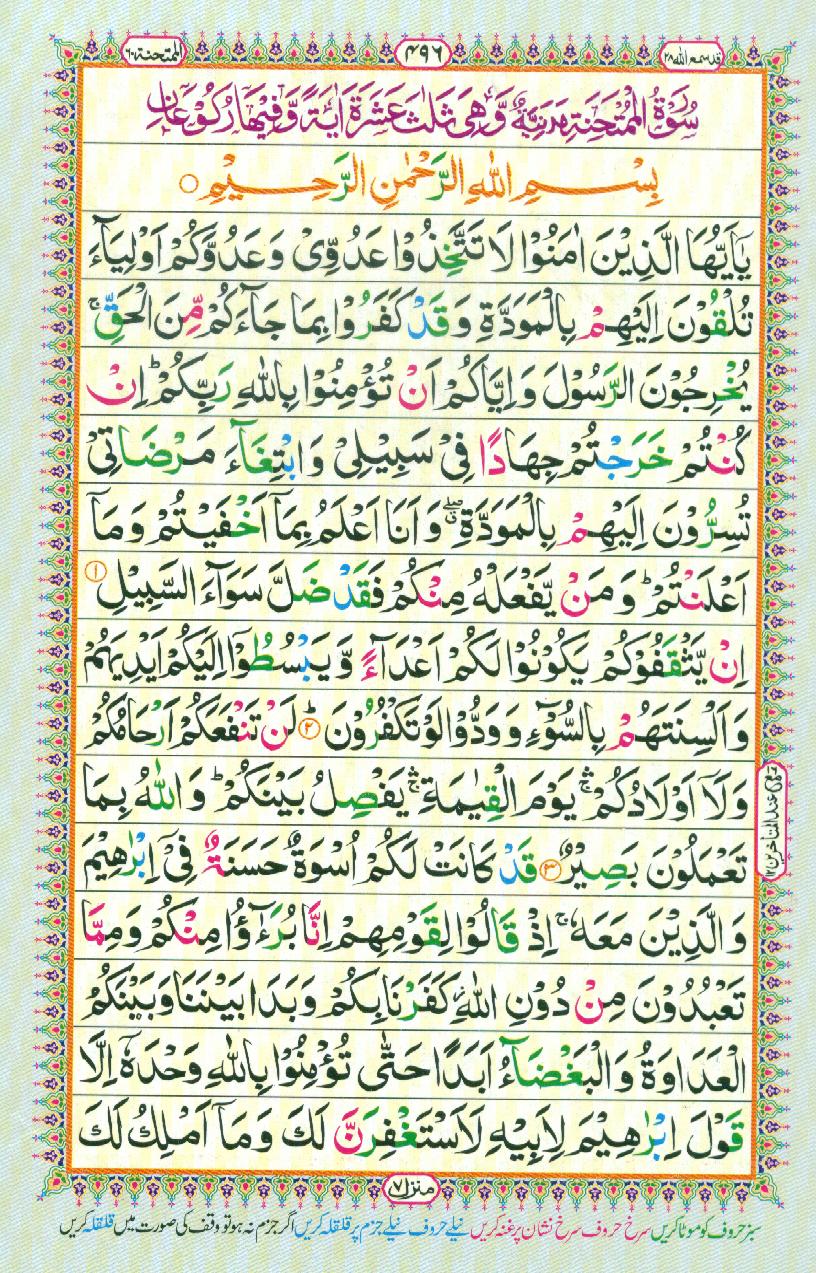 قدسمع الله ٢٨
۴۹۶
الممتحنة ٦٠
سُوْرَةُ الْمُمْتَحِنَةِ مَدَنِيَّةٌ وَّهِىَ ثَلٰثَ عَشْرَةَ اٰيَةً وَّفِيْهَا رُكُوْعَانِ
بِسْمِ اللهِ الرَّحْمٰنِ الرَّحِيْمِ ○
يٰۤاَيُّهَا الَّذِيْنَ اٰمَنُوْا لَا تَتَّخِذُوْا عَدُوِّىْ وَعَدُوَّكُمْ اَوْلِيَآءَ
تُلْقُوْنَ اِلَيْهِمْ بِالْمَوَدَّةِ وَقَدْ كَفَرُوْا بِمَا جَآءَكُمْ مِّنَ الْحَقِّ ۚ
يُخْرِجُوْنَ الرَّسُوْلَ وَاِيَّاكُمْ اَنْ تُؤْمِنُوْا بِاللهِ رَبِّكُمْ ؕ اِنْ
كُنْتُمْ خَرَجْتُمْ جِهَادًا فِىْ سَبِيْلِىْ وَابْتِغَآءَ مَرْضَاتِىْ
تُسِرُّوْنَ اِلَيْهِمْ بِالْمَوَدَّةِ ۖ وَاَنَا اَعْلَمُ بِمَاۤ اَخْفَيْتُمْ وَمَاۤ
اَعْلَنْتُمْ ؕ وَمَنْ يَّفْعَلْهُ مِنْكُمْ فَقَدْ ضَلَّ سَوَآءَ السَّبِيْلِ ①
اِنْ يَّثْقَفُوْكُمْ يَكُوْنُوْا لَكُمْ اَعْدَآءً وَّيَبْسُطُوْۤا اِلَيْكُمْ اَيْدِيَهُمْ
وَاَلْسِنَتَهُمْ بِالسُّوْٓءِ وَوَدُّوْا لَوْ تَكْفُرُوْنَ ؕ ② لَنْ تَنْفَعَكُمْ اَرْحَامُكُمْ
وَلَاۤ اَوْلَادُكُمْ ۛۚ يَوْمَ الْقِيٰمَةِ ۛۚ يَفْصِلُ بَيْنَكُمْ ؕ وَاللهُ بِمَا
تَعْمَلُوْنَ بَصِيْرٌ ③ قَدْ كَانَتْ لَكُمْ اُسْوَةٌ حَسَنَةٌ فِىْۤ اِبْرٰهِيْمَ
وَالَّذِيْنَ مَعَهٗ ۚ اِذْ قَالُوْا لِقَوْمِهِمْ اِنَّا بُرَءٰٓؤُا مِنْكُمْ وَمِمَّا
تَعْبُدُوْنَ مِنْ دُوْنِ اللهِ ؗ كَفَرْنَا بِكُمْ وَبَدَا بَيْنَنَا وَبَيْنَكُمُ
الْعَدَاوَةُ وَالْبَغْضَآءُ اَبَدًا حَتّٰى تُؤْمِنُوْا بِاللهِ وَحْدَهٗۤ اِلَّا
قَوْلَ اِبْرٰهِيْمَ لِاَبِيْهِ لَاَسْتَغْفِرَنَّ لَكَ وَمَاۤ اَمْلِكُ لَكَ
عند المتاخرين ١٢
منزل ٧
سبز حروف کو موٹا کریں سرخ حروف سرخ نشان پر غنہ کریں نیلے حروف نیلے جزم پر قلقلہ کریں اگر جزم نہ ہو تو وقف کی صورت میں قلقلہ کریں